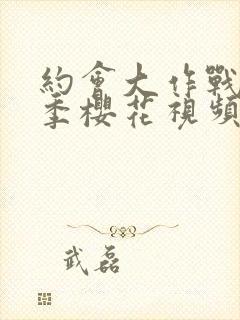 約會大作戰
季櫻花視頻
武磊